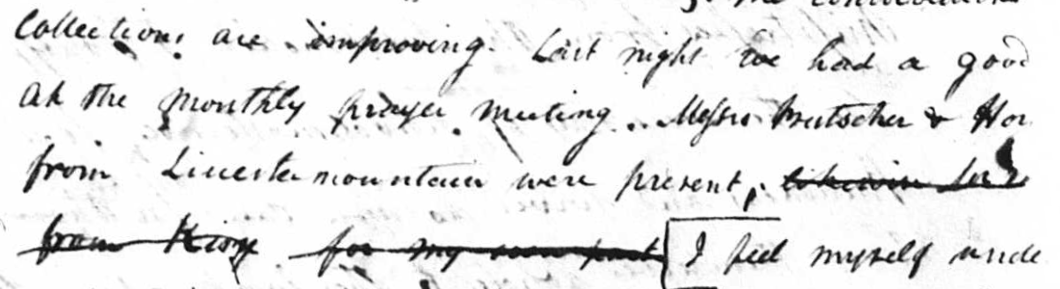 Collections are improving. Last night we had a good
at the monthly prayer meeting. Messrs Butscher & Hor
from Liecester mountain were present, likewise
from Kissy for my own part I feel myself unde